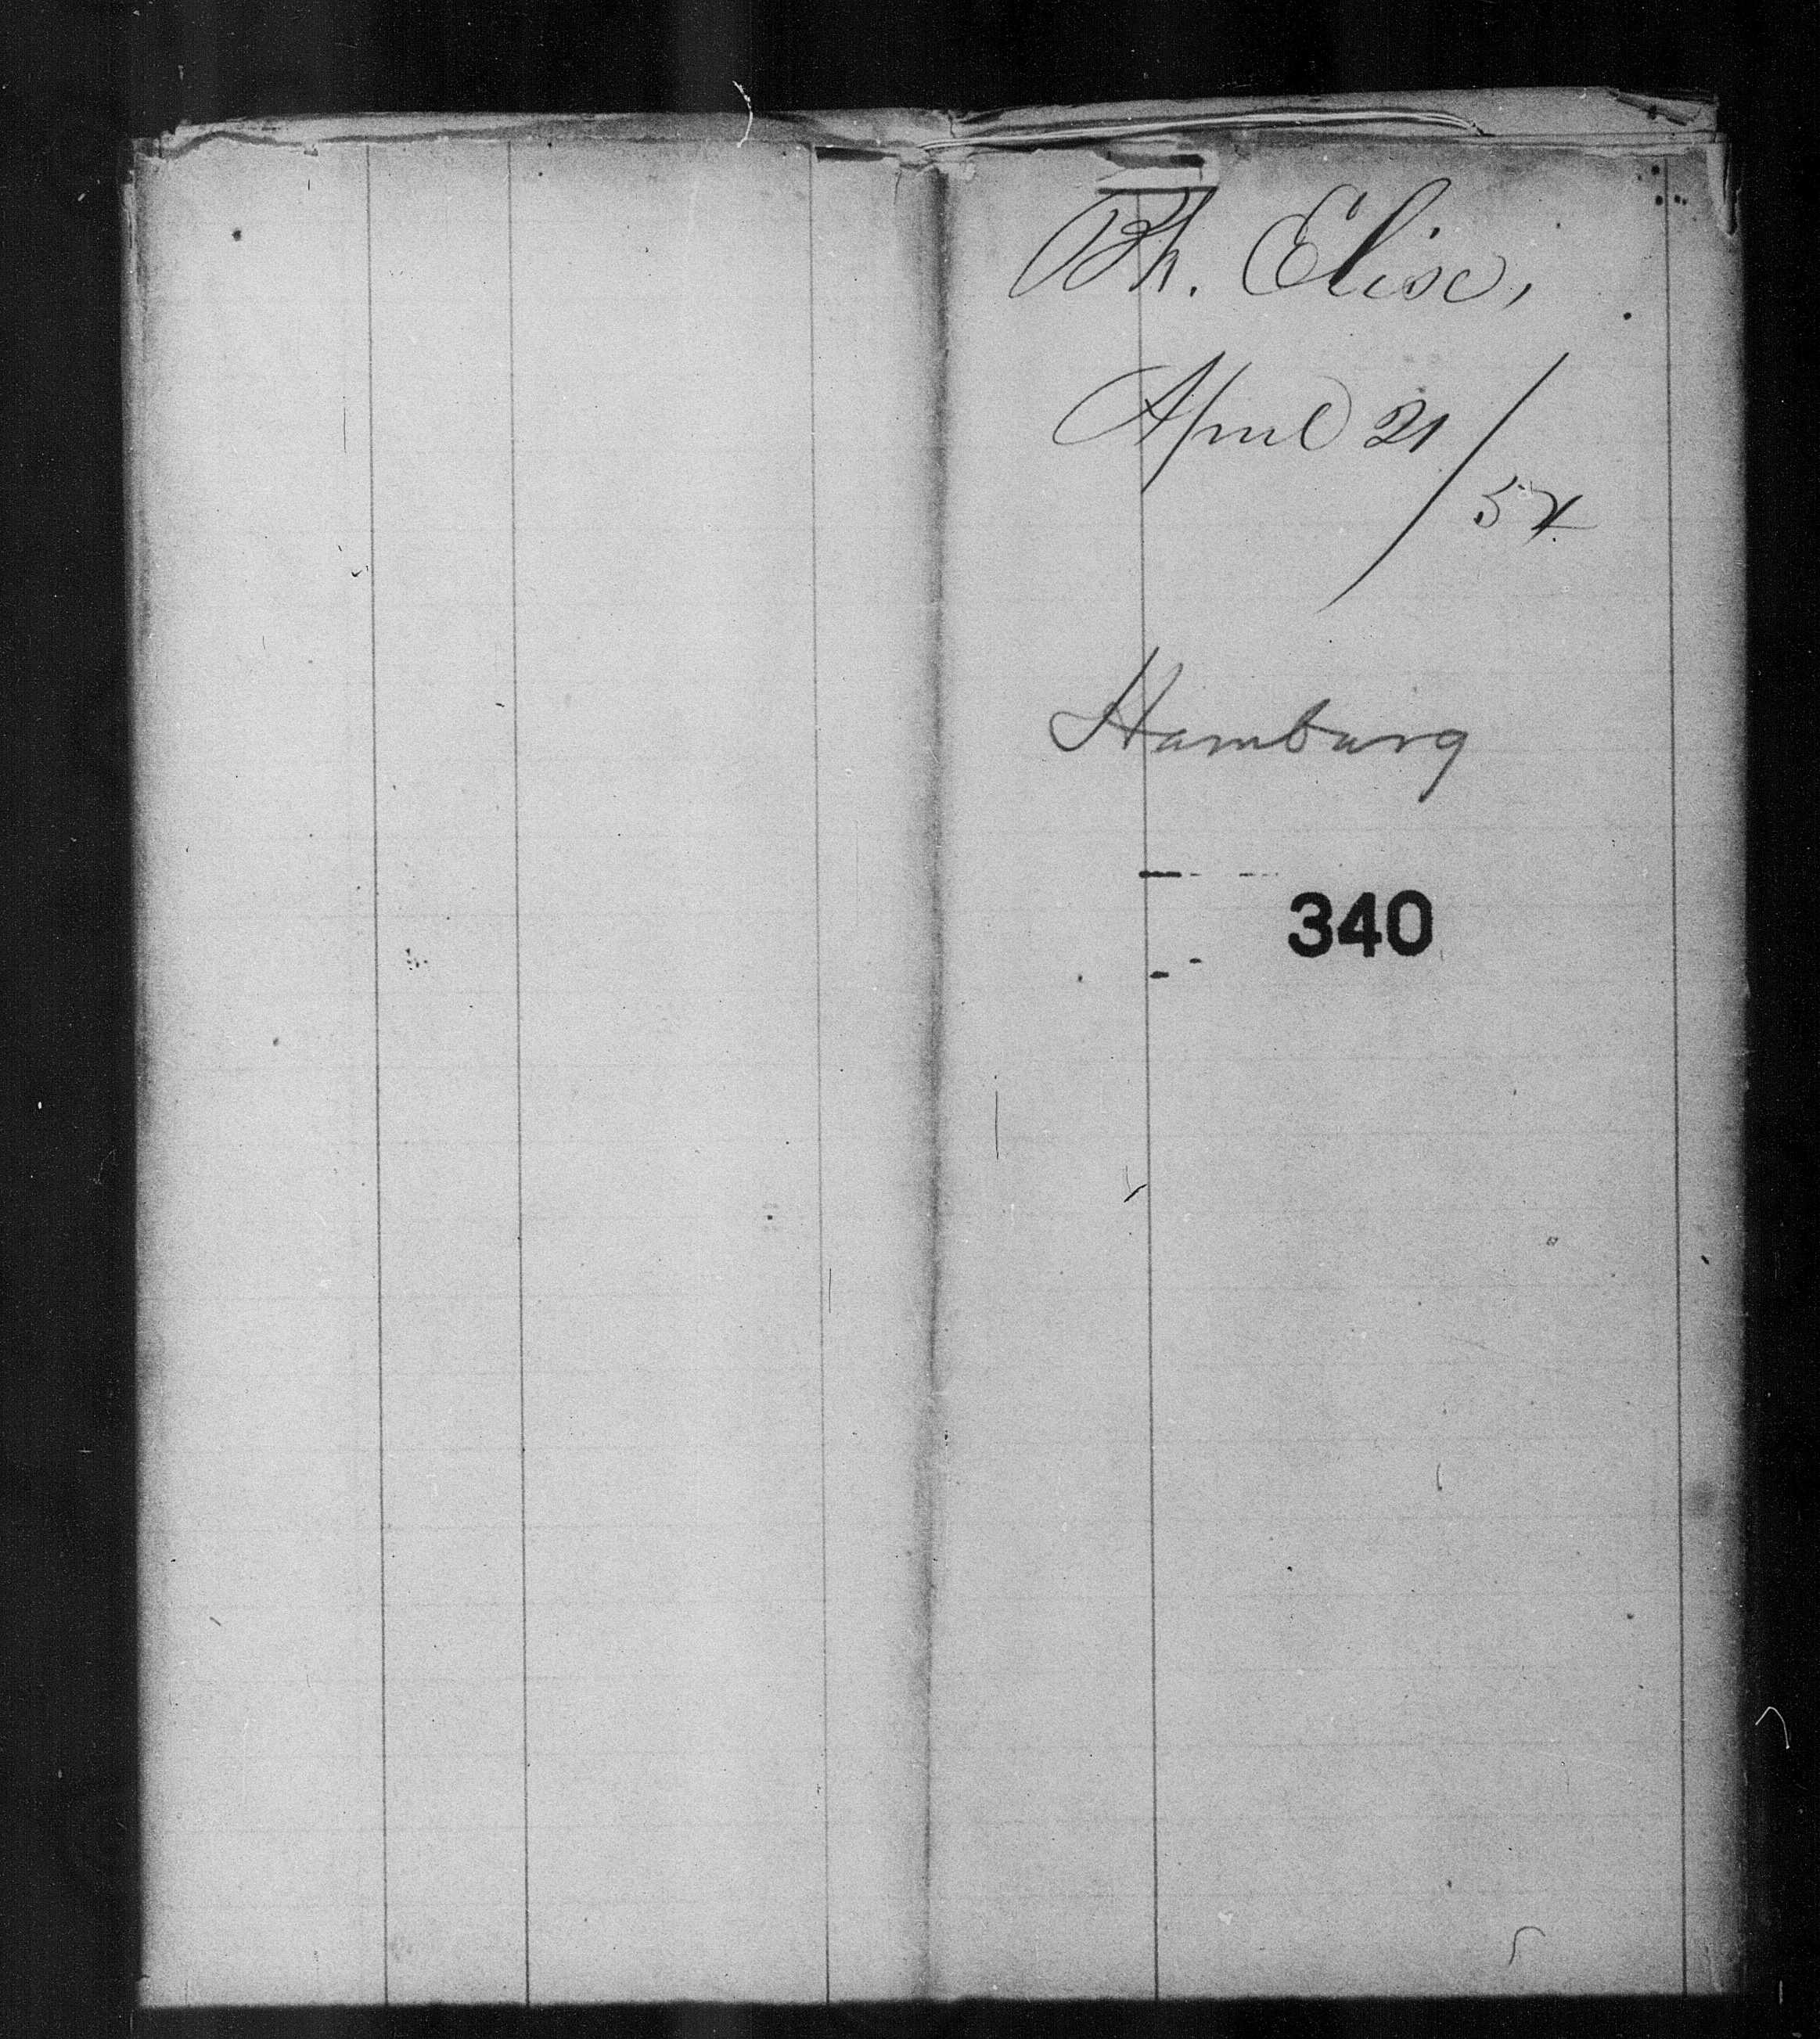 Bk. Elise,
April 21/54
Hamburg
340